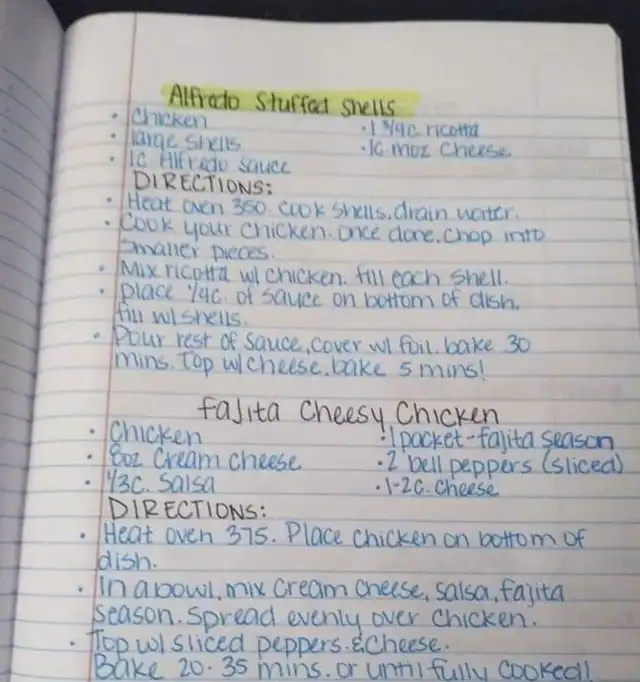 Alfredo Stuffed Shells
• Chicken • 1 3/4c ricotta
• large shells • 1c moz cheese
• 1c Alfredo sauce
DIRECTIONS:
• Heat oven 350. cook shells, drain water.
• Cook your chicken. once done, chop into
smaller pieces.
• Mix ricotta w/ chicken. fill each shell.
• place 1/4c. of sauce on bottom of dish,
fill w/ shells.
• Pour rest of sauce, cover w/ foil. bake 30
mins. Top w/ cheese, bake 5 mins!
fajita Cheesy Chicken
• Chicken • 1 packet-fajita season
• 8oz Cream cheese • 2 bell peppers (sliced)
• 1/3c. Salsa • 1-2c. cheese
DIRECTIONS:
• Heat oven 375. Place chicken on bottom of
dish.
• In a bowl, mix cream cheese, salsa, fajita
season. Spread evenly over chicken.
• Top w/ sliced peppers & cheese.
Bake 20-35 mins. or until fully cooked!